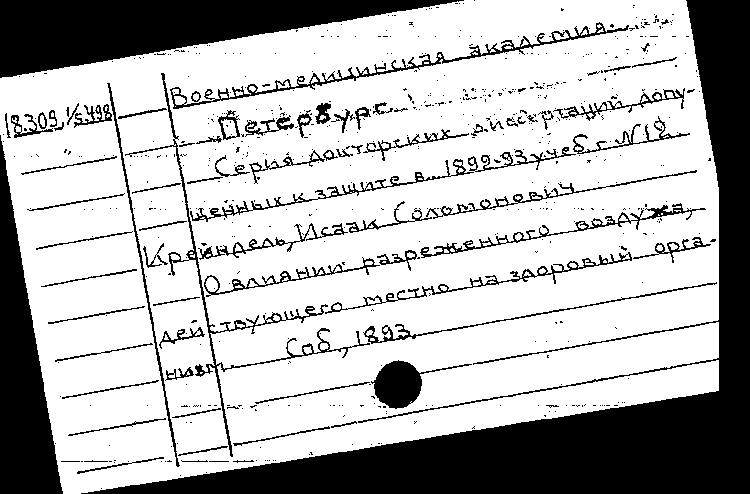 18.309, 1/s.498
Военно-медицинская академия.
Петербург
Серия докторских диссертаций, допу-
щенных к защите в 1899-93 учеб. г. N 12.
Крейндель, Исаак Соломонович
О влиянии разреженного воздуха,
действующего местно на здоровый орга-
низм. Спб., 1893.